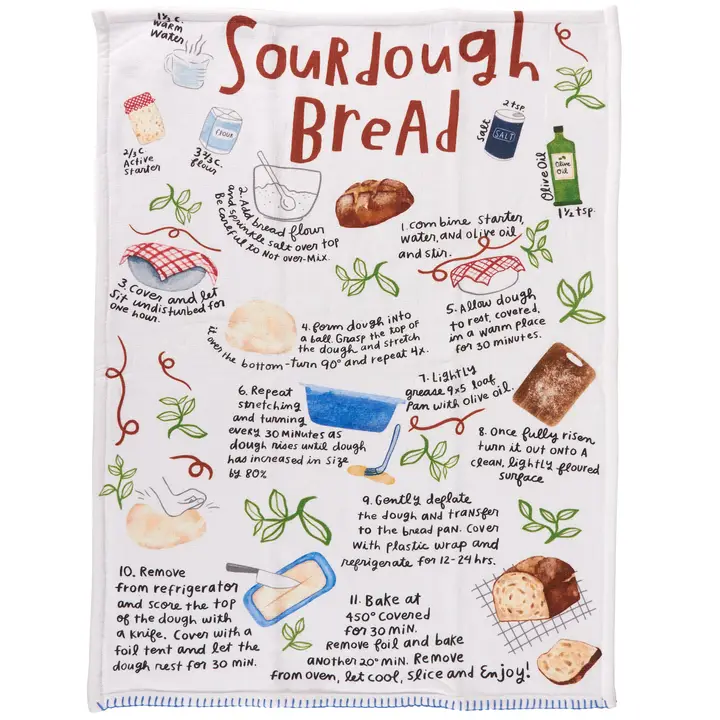 1½ c.
warm
water
Sourdough
Bread
2/3 c.
Active
starter
FLOUR
3 2/3 c.
flour
2 tsp.
Salt
SALT
Olive Oil
Olive
Oil
1½ tsp.
1. Combine starter,
water, and olive oil
and stir.
2. Add bread flour
and sprinkle salt over top
Be careful to Not over-mix.
3. Cover and let
Sit undisturbed for
one hour.
4. Form dough into
a ball. Grasp the top of
the dough and stretch
it over the bottom-turn 90° and repeat 4x.
5. Allow dough
to rest, covered,
in a warm place
for 30 minutes.
6. Repeat
stretching
and turning
every 30 minutes as
dough rises until dough
has increased in size
by 80%
7. Lightly
grease 9x5 loaf
pan with olive oil.
8. Once fully risen
turn it out onto a
clean, lightly floured
surface
9. Gently deflate
the dough and transfer
to the bread pan. Cover
with plastic wrap and
refrigerate for 12-24 hrs.
10. Remove
from refrigerator
and score the top
of the dough with
a knife. Cover with a
foil tent and let the
dough rest for 30 min.
11. Bake at
450° covered
for 30 min.
Remove foil and bake
another 20° min. Remove
from oven, let cool, slice and Enjoy!